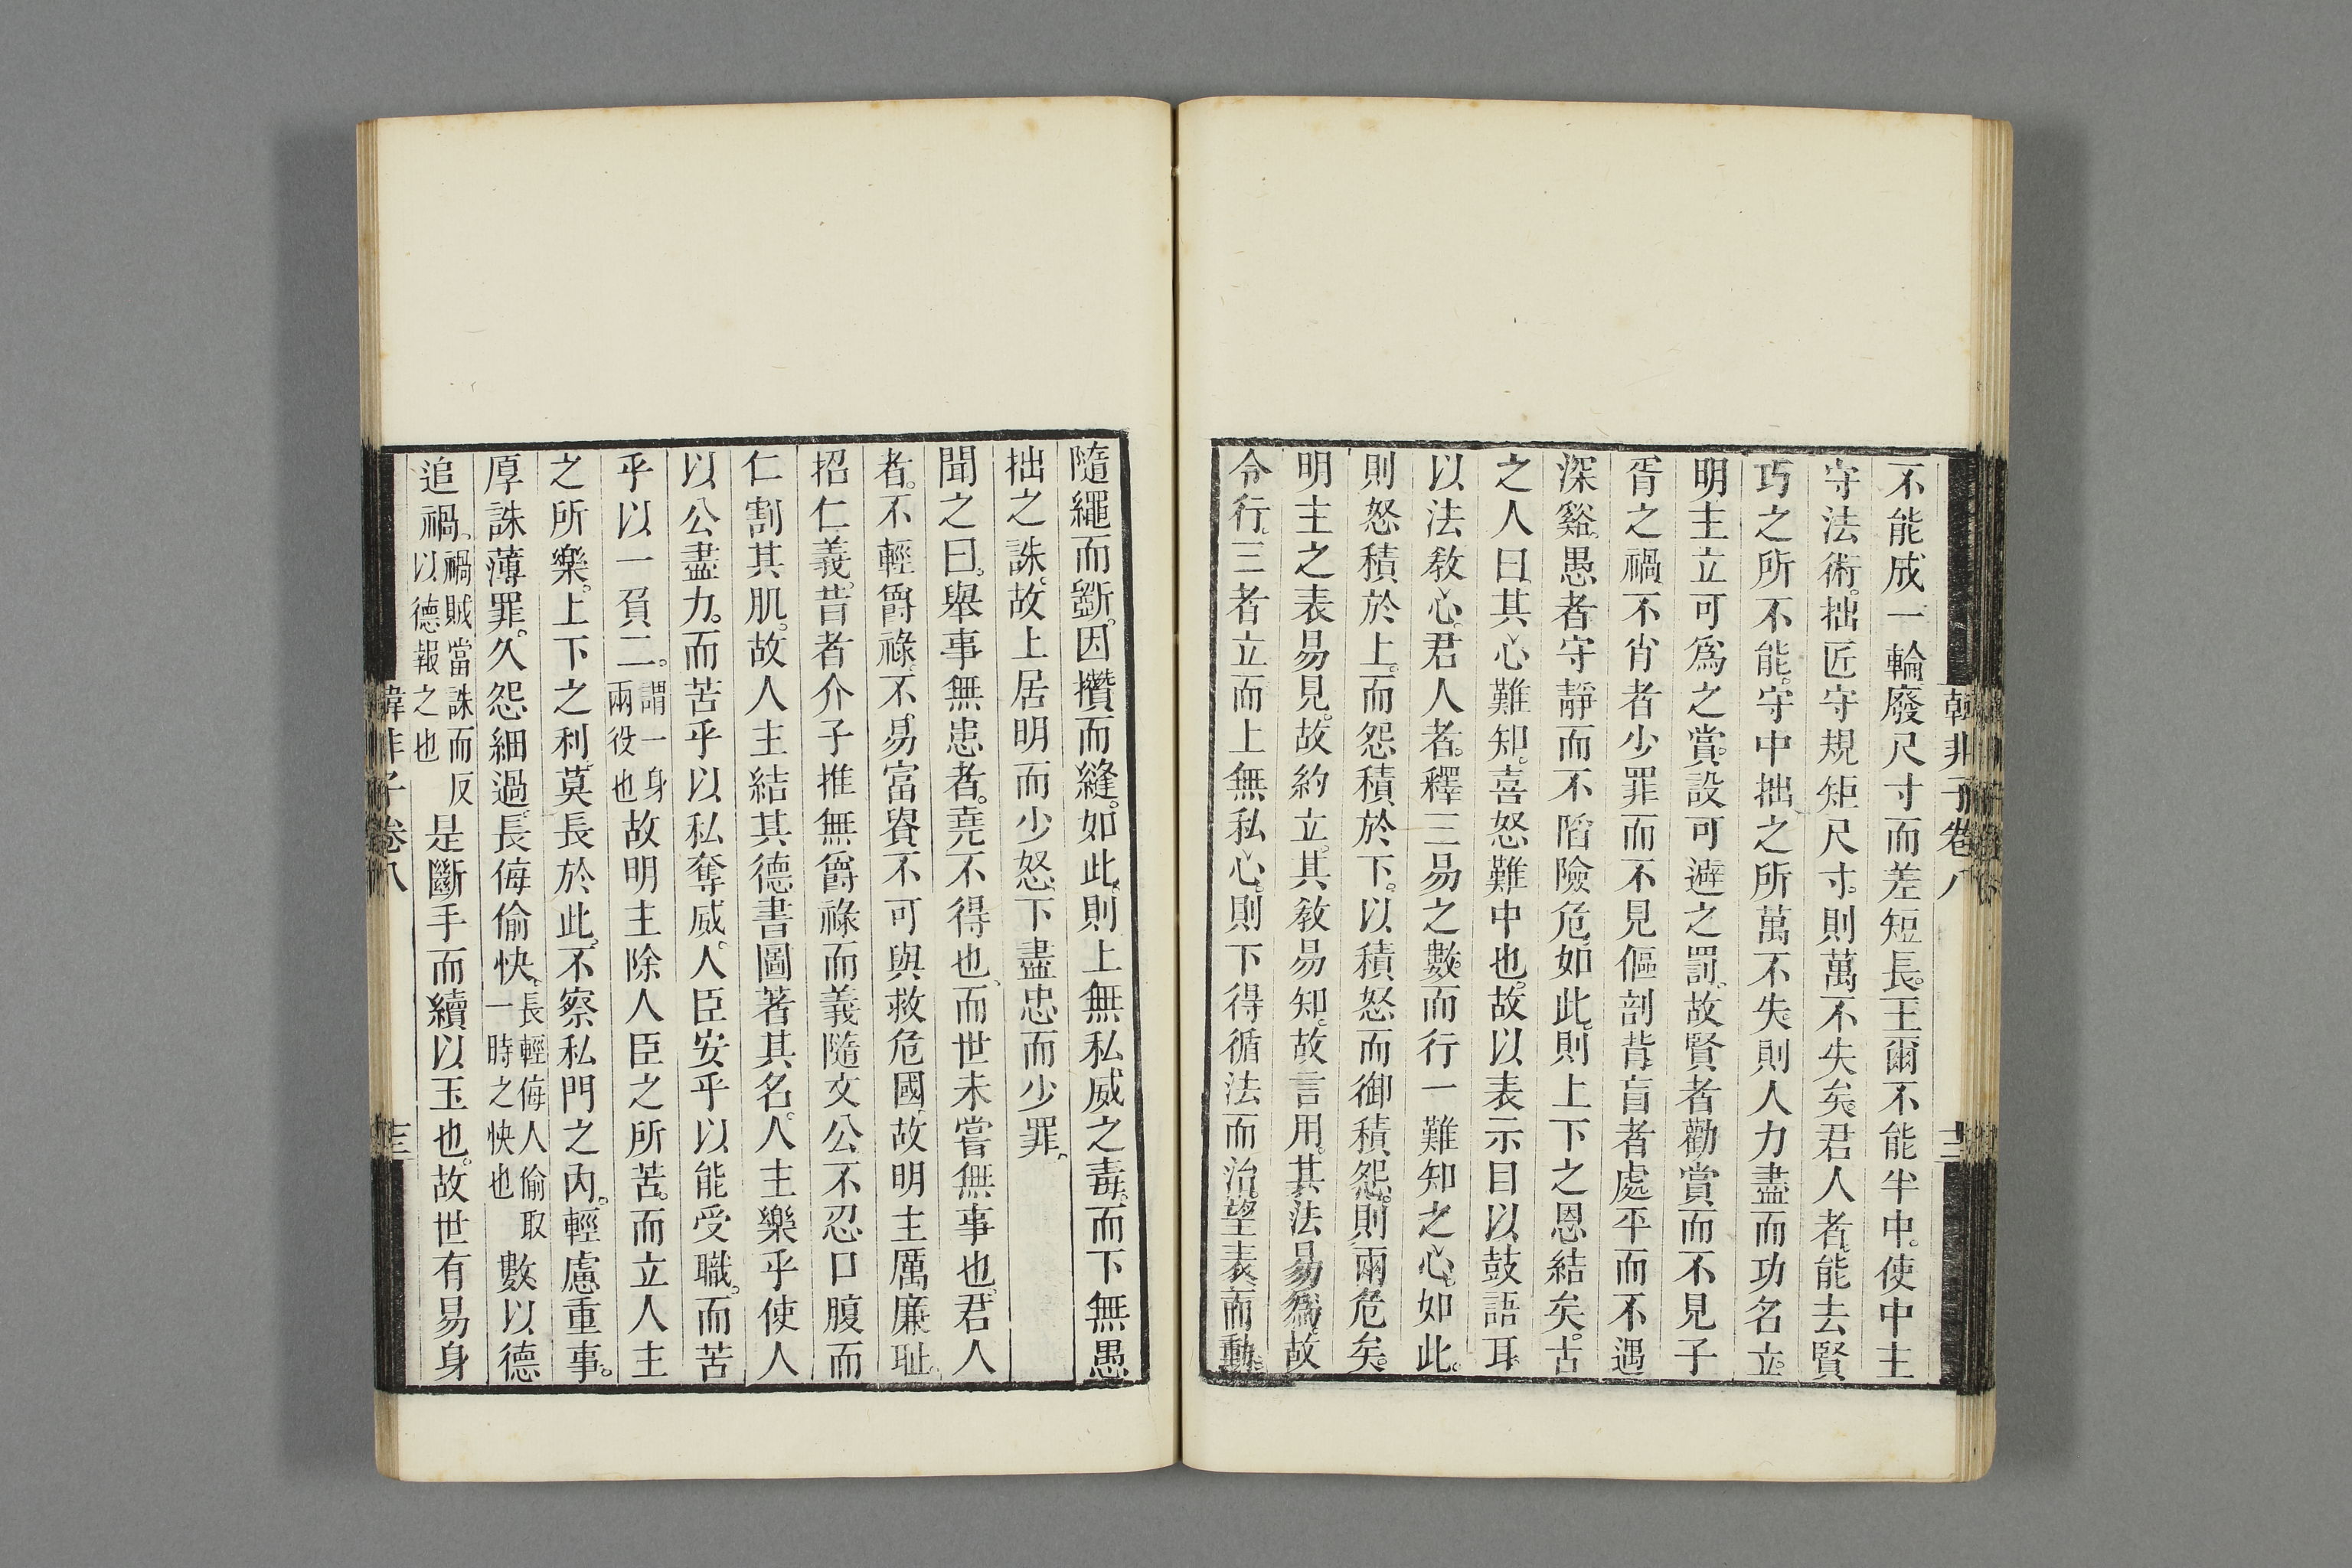 韓非子卷八
十二
不能成一輪廢尺寸而差短長。王爾不能半中。使中主
守法術。拙匠守規矩尺寸。則萬不失矣。君人者。能去賢
巧之所不能。守中拙之所萬不失。則人力盡而功名立。
明主立可爲之賞。設可避之罰。故賢者勸賞而不見子
胥之禍。不肖者少罪而不見傴剖背。盲者處平而不遇
深谿。愚者守靜而不陷險危。如此。則上下之恩結矣。古
之人曰。其心難知。喜怒難中也。故以表示目。以鼓語耳。
以法教心。君人者。釋三易之數。而行一難知之心。如此。
則怒積於上。而怨積於下。以積怒而御積怨。則兩危矣。
明主之表易見。故約立。其教易知。故言用。其法易爲。故
令行。三者立而上無私心。則下得循法而治。望表而動。
隨繩而斲。因攢而縫。如此。則上無私威之毒。而下無愚
拙之誅。故上居明而少怒。下盡忠而少罪。
聞之曰。舉事無患者。堯不得也。而世未嘗無事也。君人
者。不輕爵祿。不易富貴。不可與救危國。故明主厲廉恥。
招仁義。昔者介子推無爵祿而義隨文公。不忍口腹而
仁割其肌。故人主結其德。書圖著其名。人主樂乎使人
以公盡力。而苦乎以私奪威。人臣安乎以能受職。而苦
乎以一負二。謂一身兩役也故明主除人臣之所苦。而立人主
之所樂。上下之利。莫長於此。不察私門之內。輕慮重事。
厚誅薄罪。久怨細過。長侮偷快。長輕侮人偷取一時之快也數以德
追禍。禍賊當誅而反以德報之也是斷手而續以玉也。故世有易身
韓非子卷八
十三